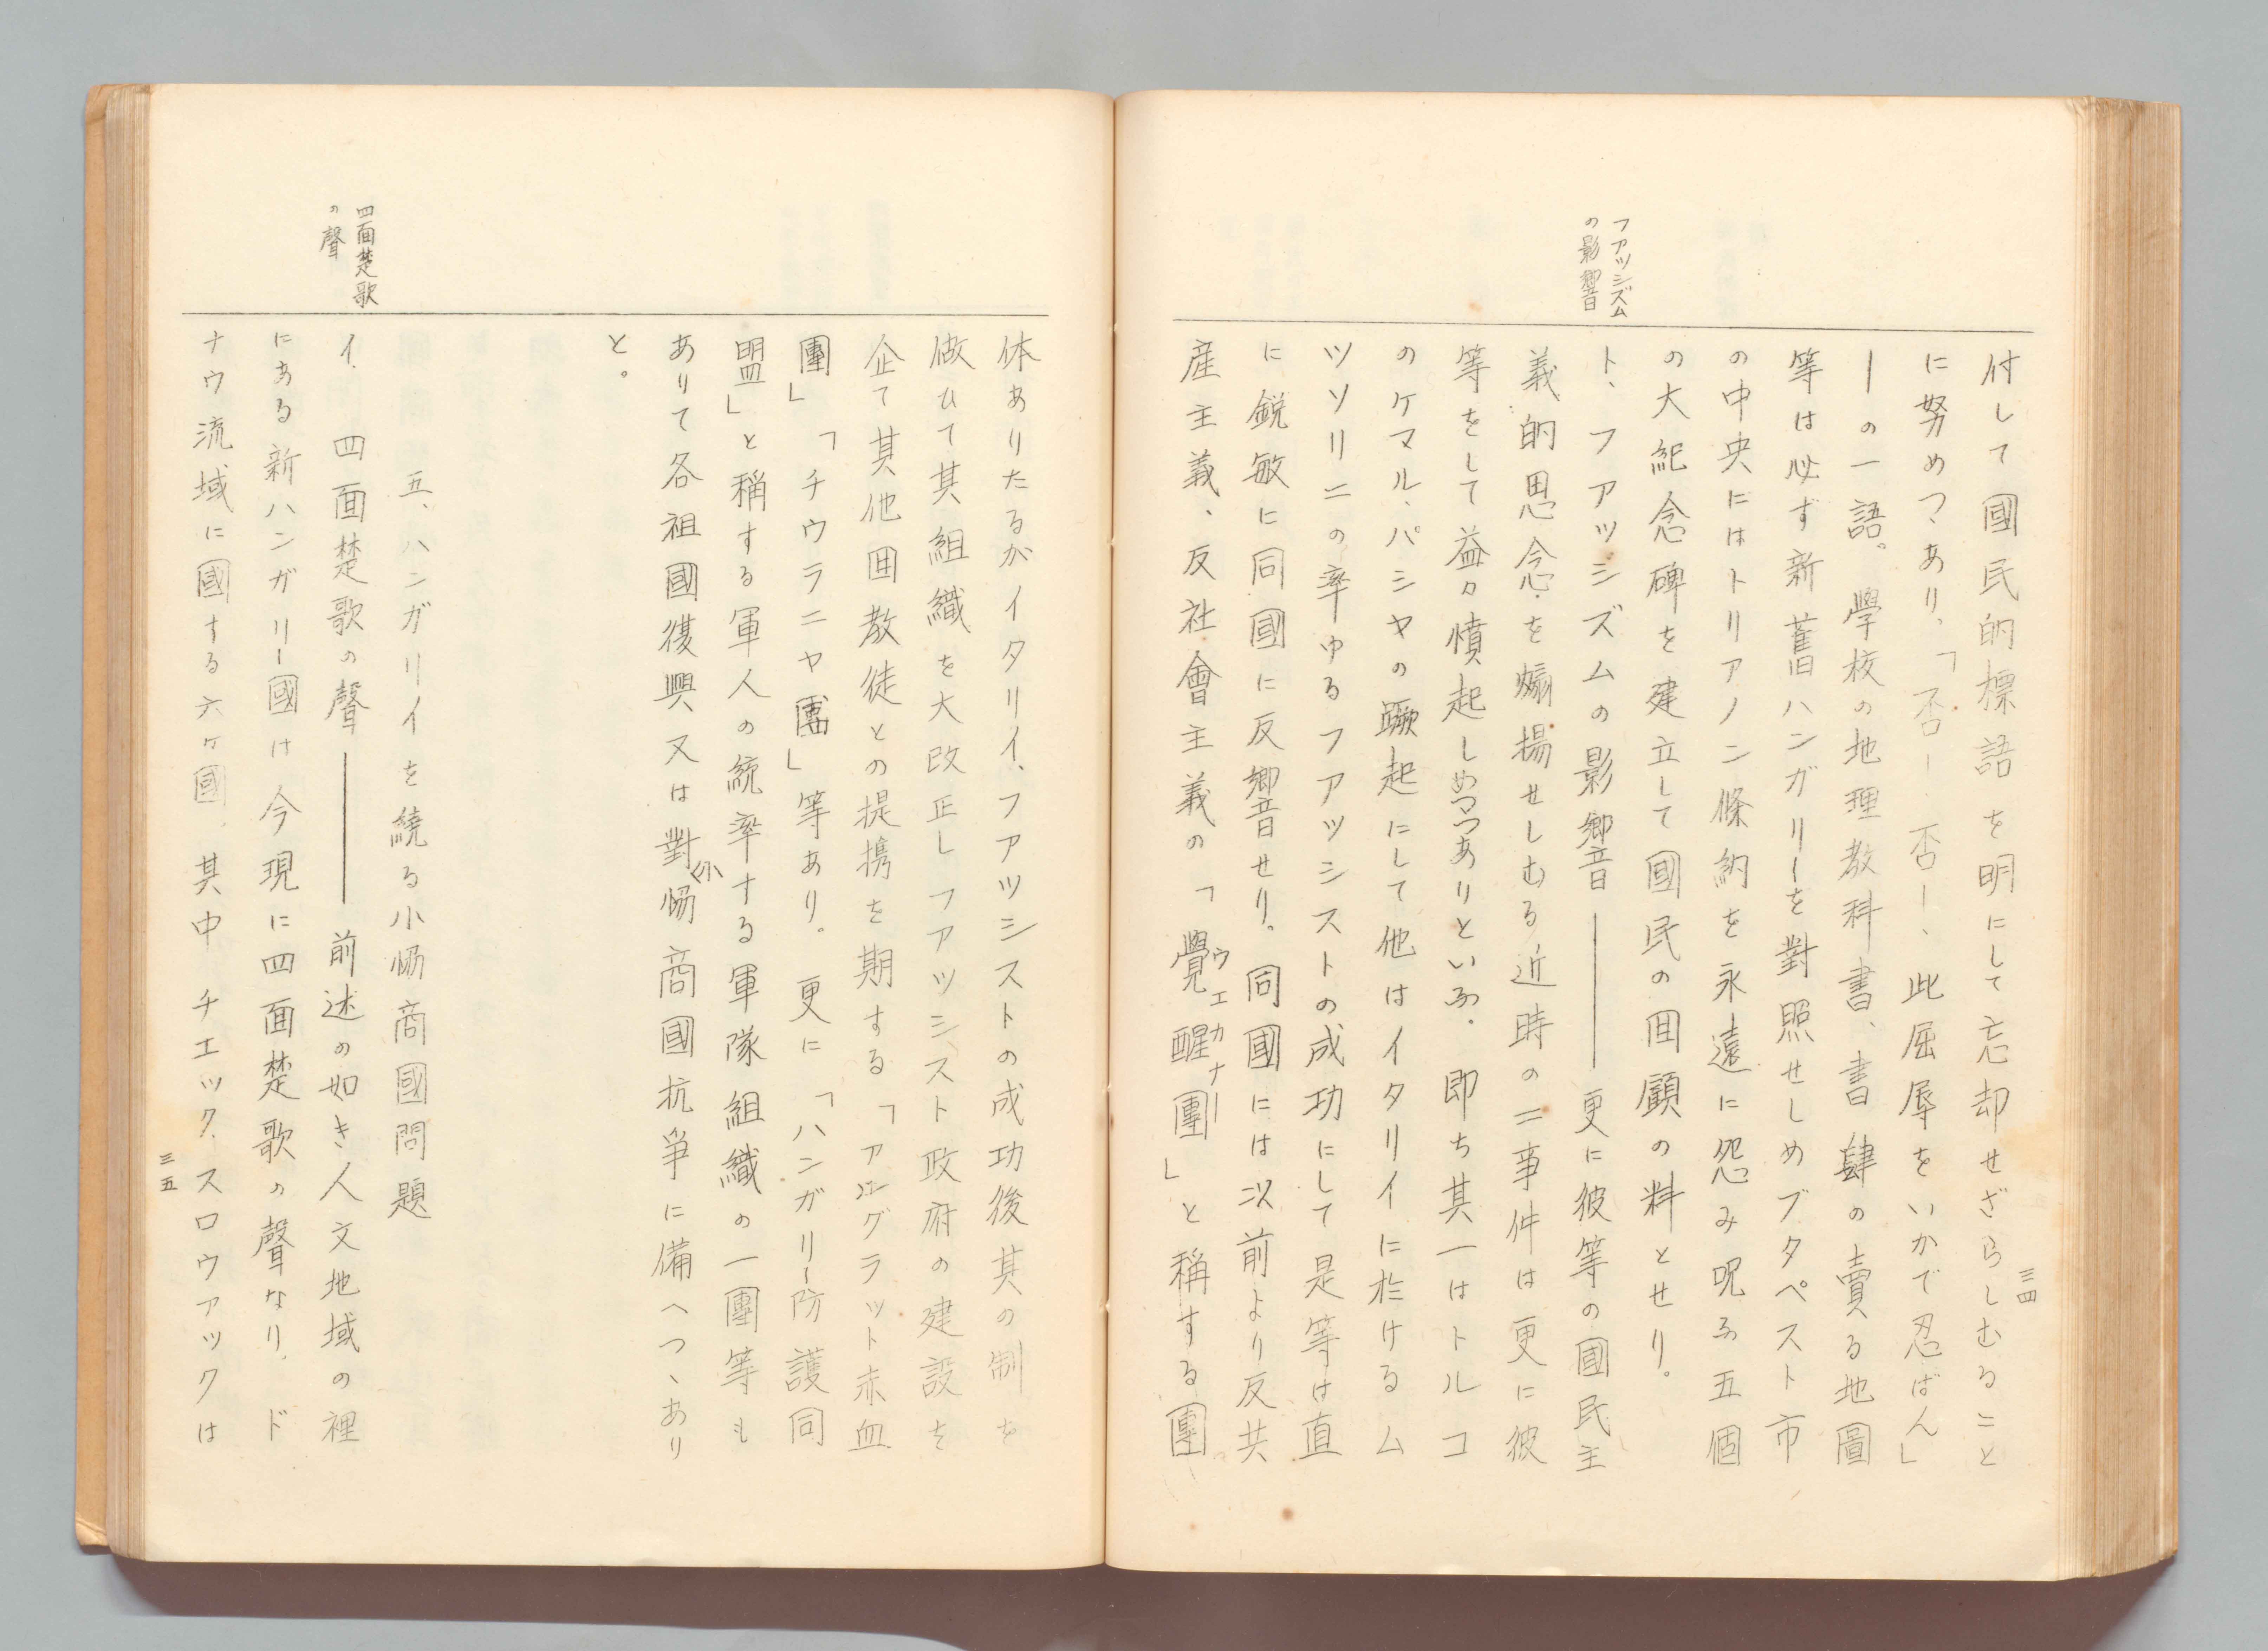 三四
フアツシズム
の影響
付して國民的標語を明にして忘却せざらしむること
に努めつゝあり、「否ー否ー、此屈辱をいかで忍ばん」
ーの一語。學校の地理教科書、書肆の賣る地圖
等は必ず新舊ハンガリーを對照せしめブタペスト市
の中央にはトリアノン條約を永遠に怨み呪ふ五個
の大紀念碑を建立して國民の回顧の料とせり。
ト、フアッシズムの影響―――更に彼等の國民主
義的思念を煽揚せしむる近時の二事件は更に彼
等をして益々憤起しめつつありといふ。即ち其一はトルコ
のケマル、パシヤの蹶起にして他はイタリイに於けるム
ツソリニの率ゆるフアッシストの成功にして是等は直
に鋭敏に同國に反響せり。同國には以前より反共
産主義、反社會主義の「覺醒團」と稱する團
ウエカナー
体ありたるがイタリイ、フアツシストの成功後其の制を
倣ひて其組織を大改正しフアツシスト政府の建設を
企て其他回教徒との提携を期する「アエグラット赤血
團」「チウラニヤ團」等あり。更に「ハンガリー防護同
盟」と稱する軍人の統率する軍隊組織の一團等も
ありて各祖國復興又は對小協商國抗爭に備へつゝあり
と。
五、ハンガリイを繞る小協商國問題
四面楚歌
の聲
イ. 四面楚歌の聲―――前述の如き人文地域の裡
にある新ハンガリー國は今現に四面楚歌の聲なり、ド
ナウ流域に國する六ケ國、其中チエック、スロウアックは
三五